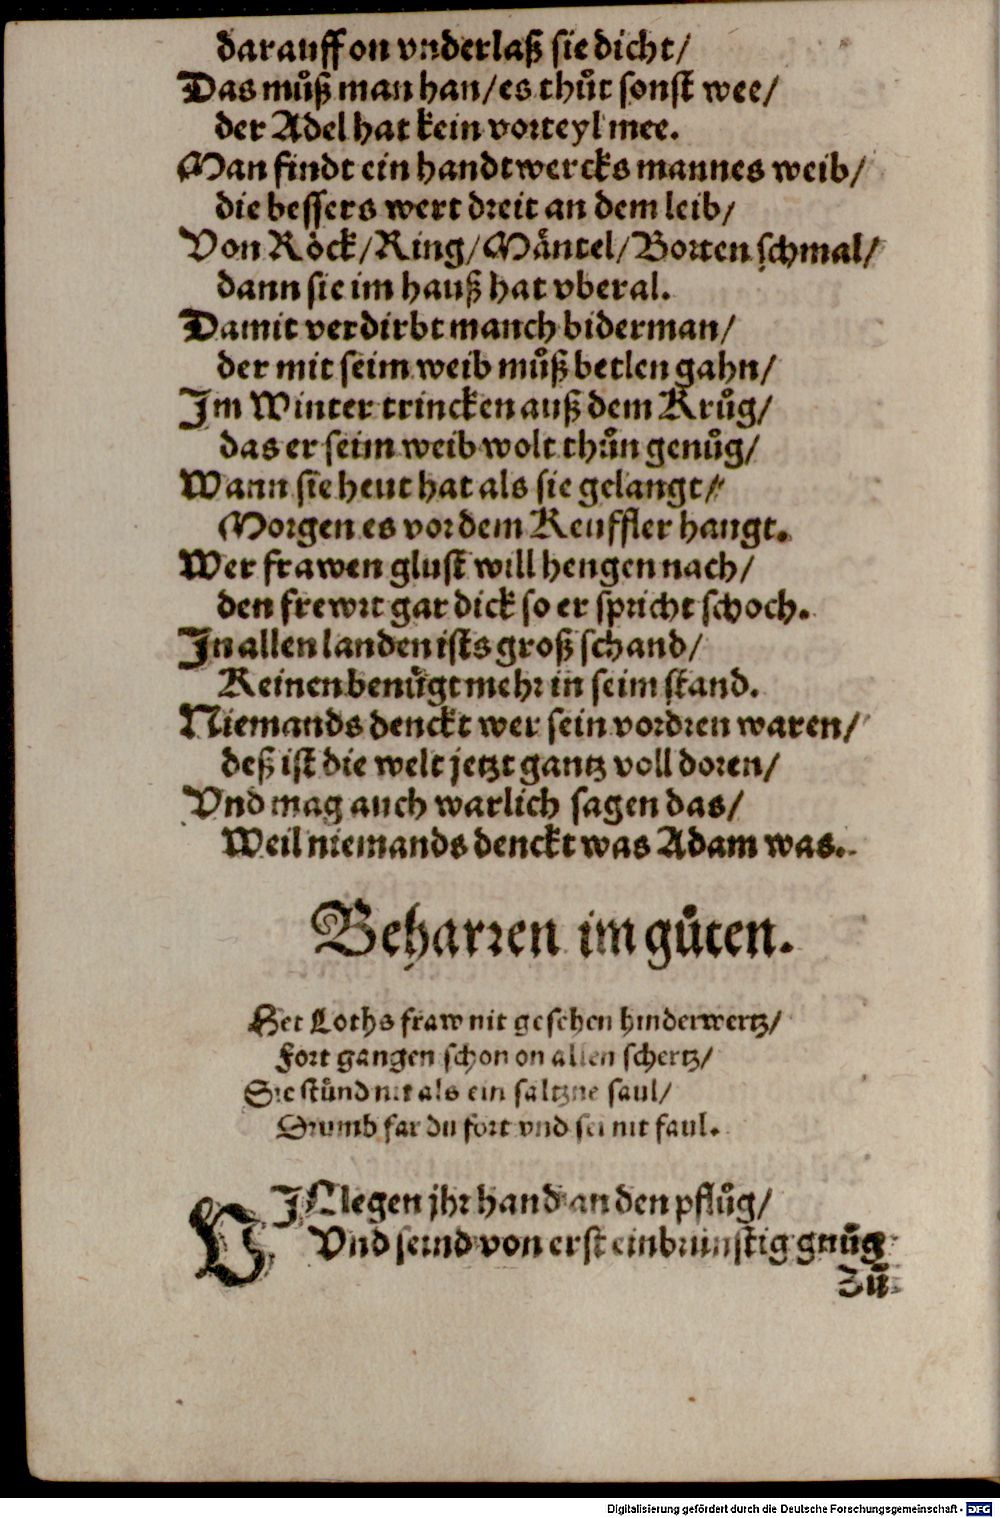 darauff on vnderlaß sie dicht/
Das můß man han/es thůt sonst wee/
der Adel hat kein vorteyl mee.
Man findt ein handtwercks mannes weib/
die bessers wert dreit an dem leib/
Von Röck/Ring/Mäntel/Borten schmal/
dann sie im hauß hat vberal.
Damit verdirbt manch biderman/
der mit seim weib můß betlen gahn/
Im Winter trincken auß dem Krůg/
das er seim weib wolt thůn genůg/
Wann sie heut hat als sie gelangt/
Morgen es vor dem Keuffler hangt.
Wer frawen glust will hengen nach/
den frewrt gar dick so er spricht schoch.
In allen landen ists groß schand/
Keinen benůgt mehr in seim stand.
Niemands denckt wer sein vordren waren/
deß ist die welt jetzt gantz voll doren/
Vnd mag auch warlich sagen das/
Weil niemands denckt was Adam was.
Beharren im gůten.
Het Loths fraw nit gesehen hinderwertz/
Fort gangen schon on allen schertz/
Sie stůnd nit als ein saltzne saul/
Drumb far du fort vnd sei nit faul.
VIl legen jhr hand an den pflůg/
Vnd seind von erst einbrünstig gnůg
Zů
Digitalisierung gefördert durch die Deutsche Forschungsgemeinschaft - DFG